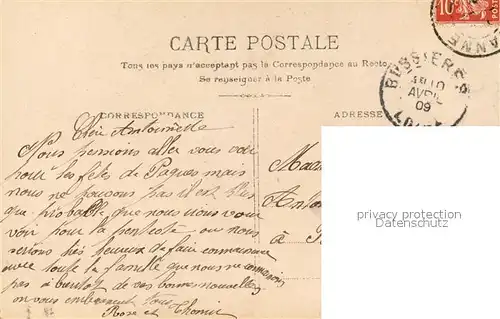 10
POSTES
CARTE POSTALE
Tous les pays n'acceptant pas la Correspondance au Recto
Se renseigner à la Poste
BUSSIÈRES
10
AVRIL
09
LOIRE
CORRESPONDANCE
ADRESSE
Chère Antoinette
Nous pensions aller vous voir
pour les fêtes de Paques mais
nous ne pouvons pas il est plus
que probable que nous irons vous
voir pour la pentecote ou nous
serions très heureux de faire connaissance
avec toute la famille que nous ne connaissons
pas à bientôt de vos bonnes nouvelles
on vous embrassant tous
Rose et
Anto
à
privacy protection
Datenschutz